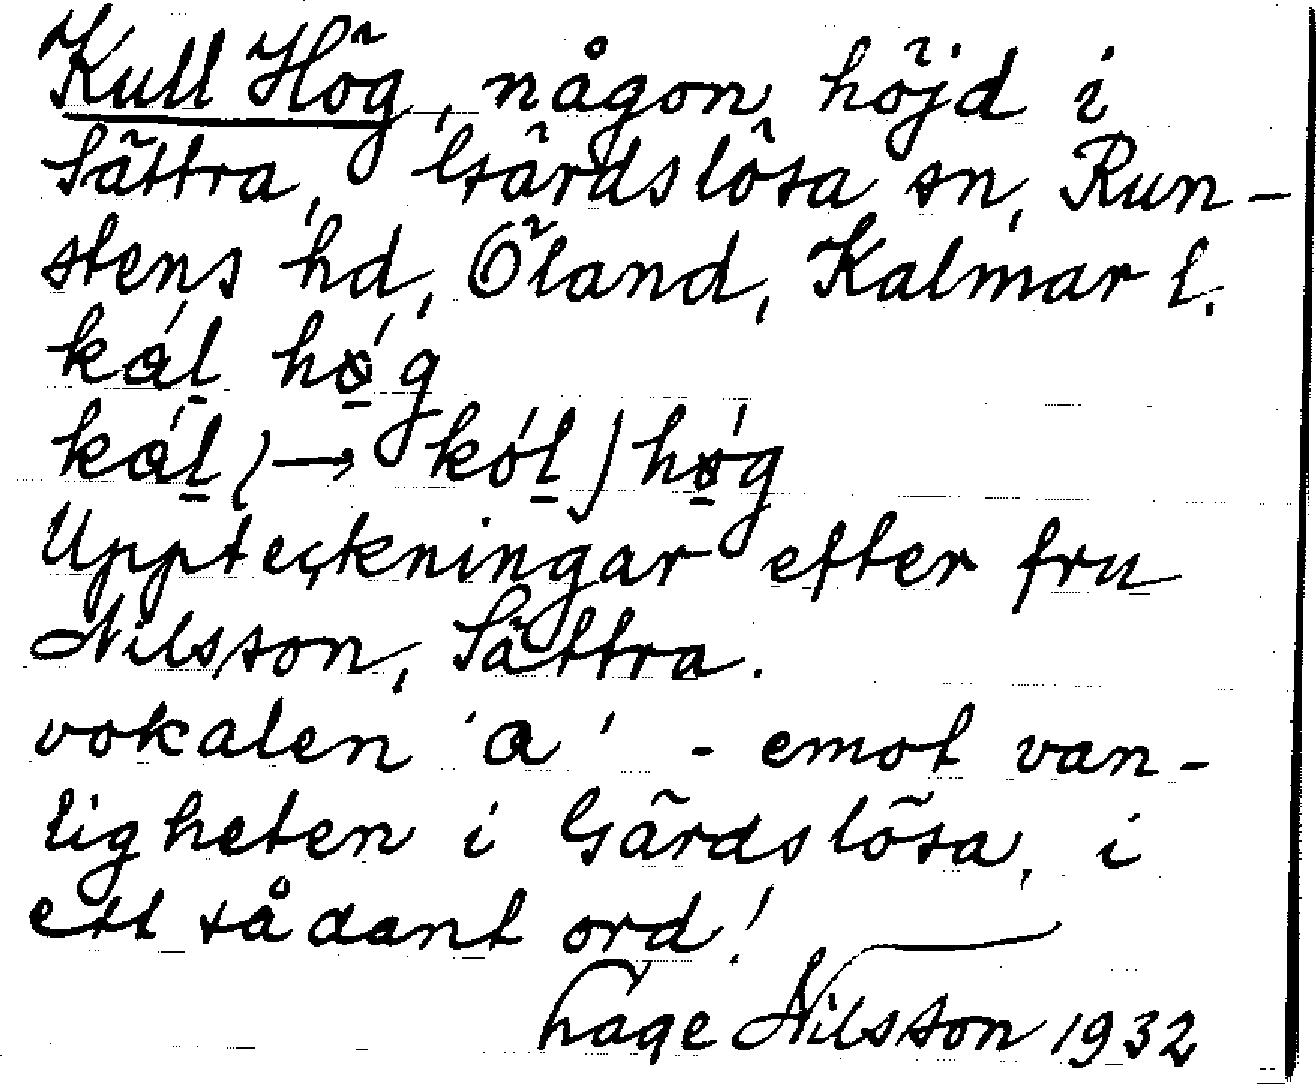 Kull Hög, någon höjd i
Sättra, Gärdslösa sn, Run-
stens hd, Öland, Kalmar l.
kál hǿ̱g
kál (→ kól) hǿ̱g
Uppteckningar efter fru
Nilsson, Sättra.
vokalen 'a' - emot van-
ligheten i Gärdslösa, i
ett sådant ord!
Nilsson 1932